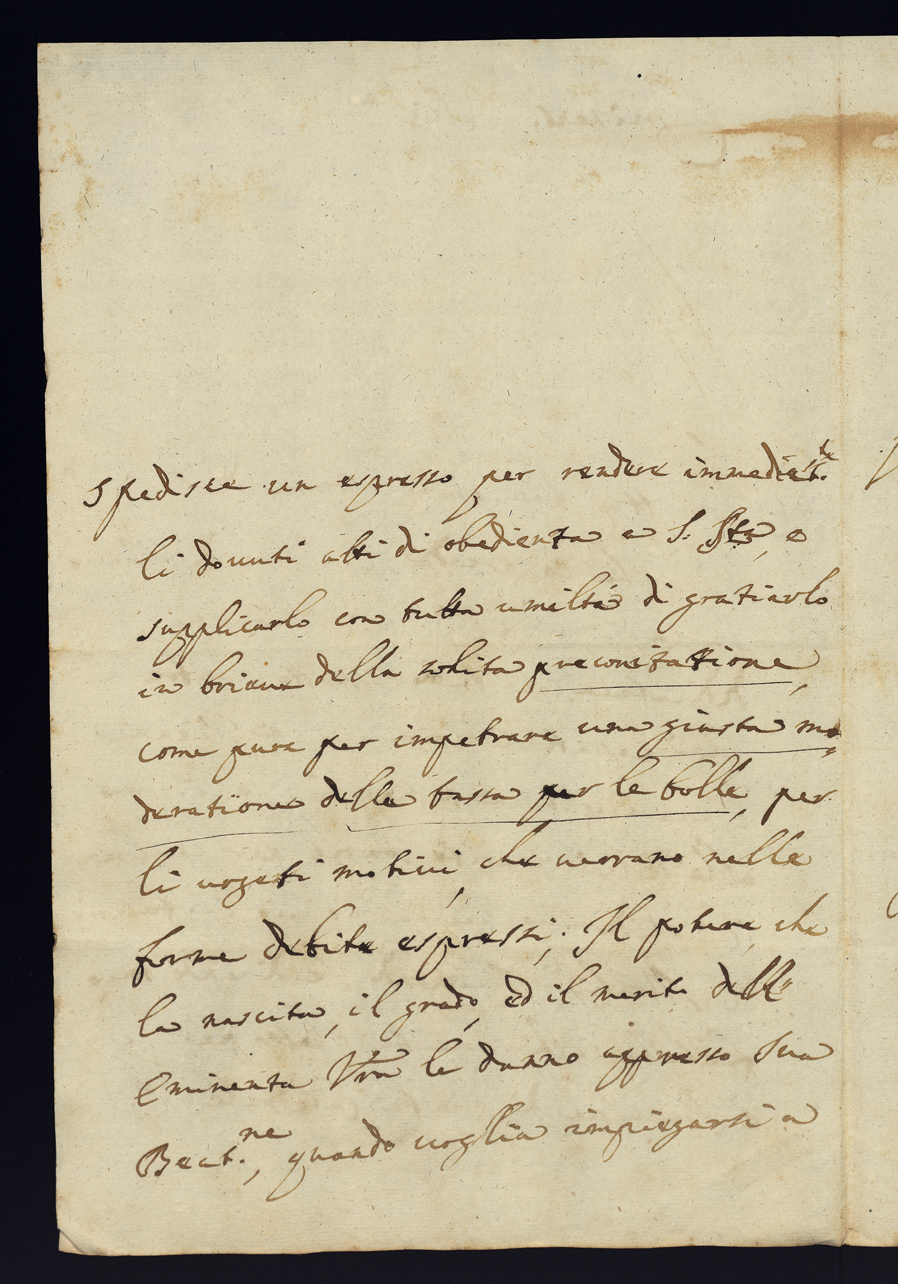 Spedisce un espresso per rendere immediat.te
li dovuti atti di obedienza a S. Stà, e
supplicarlo con tutta umiltà di gratiarlo
in brieve della solita preconizattione,
come pure per impetrare una giusta mo„
deratione delle tassa per le bolle, per
li urgenti motivi, che verrano nelle
forme debite espressi; Il potere, che
la nascita, il grado, ed il merito dell'
Eminenza Vra le danno appresso Sua
Beat.ne, quando voglia impiegarsi a